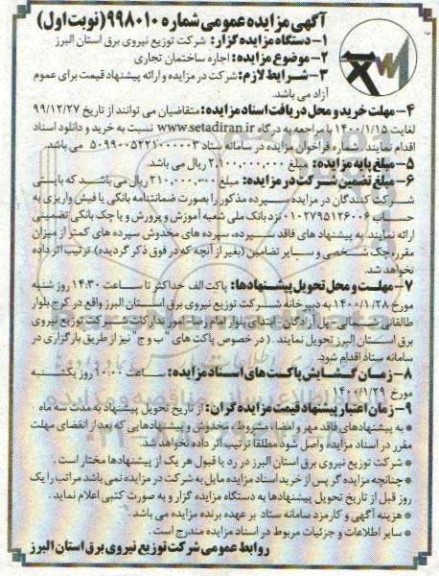 آگهی مزایده عمومی شماره ۹۹۸۰۱۰ (نوبت اول)
۱- دستگاه مزایده گزار: شرکت توزیع نیروی برق استان البرز
۲- موضوع مزایده: اجاره ساختمان تجاری
۳- شرایط لازم: شرکت در مزایده و ارائه پیشنهاد قیمت برای عموم
آزاد می باشد.
۴- مهلت خرید و محل دریافت اسناد مزایده: متقاضیان می توانند از تاریخ ۹۹/۱۲/۲۷
لغایت ۱۴۰۰/۱/۱۵ با مراجعه به درگاه www.setadiran.ir نسبت به خرید و دانلود اسناد
اقدام نمایند. شماره فراخوان مزایده در سامانه ستاد ۵۰۹۹۰۰۵۲۲۱۰۰۰۰۰۳ می باشد.
۵- مبلغ پایه مزایده: مبلغ ۲,۱۰۰,۰۰۰,۰۰۰ ریال می باشد.
۶- مبلغ تضمین شرکت در مزایده: مبلغ ۲۱۰,۰۰۰,۰۰۰ ریال می باشد که بایستی
شرکت کنندگان در مزایده سپرده مذکور را بصورت ضمانتنامه بانکی یا فیش واریزی به
حساب ۰۱۰۲۷۹۵۱۲۶۰۰۶ نزد بانک ملی شعبه آموزش و پرورش و یا چک بانکی تضمینی
ارائه نمایند. به پیشنهاد های فاقد سپرده، سپرده های مخدوش سپرده های کمتر از میزان
مقرره چک شخصی و سایر تضامین (بغیر از آنچه که در فوق ذکر گردیده) ترتیب اثر داده
نخواهد شد.
۷- مهلت و محل تحویل پیشنهادها: پاکت الف حداکثر تا ساعت ۱۴:۳۰ روز شنبه
مورخ ۱۴۰۰/۱/۲۸ به دبیرخانه شرکت توزیع نیروی برق استان البرز واقع در کرج بلوار
طالقانی شمالی - پل آزادگان - ابتدای بلوار امام رضا - امور تدارکات شرکت توزیع نیروی
برق استان البرز تحویل نمایند. (در خصوص پاکت های "ب و ج" نیز از طریق بارگزاری در
سامانه ستاد اقدام شود.
۸- زمان گشایش پاکت های اسناد مزایده: ساعت روز یکشنبه
مورخ ۱۴۰۰/۱/۲۹
۹- زمان اعتبار پیشنهاد قیمت مزایده گران: از تاریخ تحویل پیشنهاد به مدت سه ماه
* به پیشنهادهای فاقد مهر و امضاء مشروط، مخدوش و پیشنهادهایی که بعد از انقضای مهلت
مقرر در اسناد مزایده واصل شود مطلقا ترتیب اثر داده نخواهد شد.
* شرکت توزیع نیروی برق استان البرز در رد یا قبول هر یک از پیشنهادها مختار است.
* چنانچه مزایده گر پس از خرید اسناد مزایده مایل به شرکت در مزایده نمی باشد مراتب را یک
روز قبل از تاریخ تحویل پیشنهادها به دستگاه مزایده گزار و به صورت کتبی اعلام نماید.
* هزینه آگهی و کارمزد سامانه ستاد بر عهده برنده مزایده می باشد.
* سایر اطلاعات و جزئیات مربوط در اسناد مزایده مندرج است.
روابط عمومی شرکت توزیع نیروی برق استان البرز